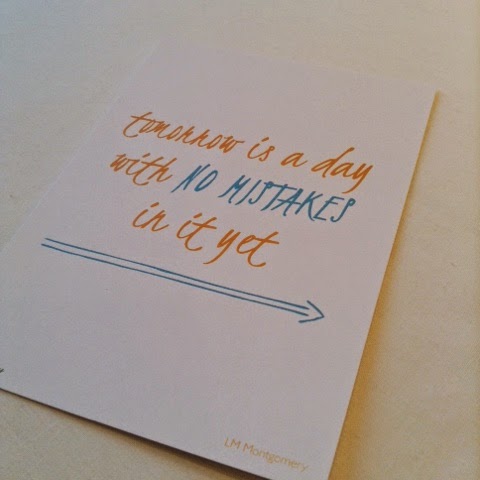 tomorrow is a day
with NO MISTAKES
in it yet
LM Montgomery